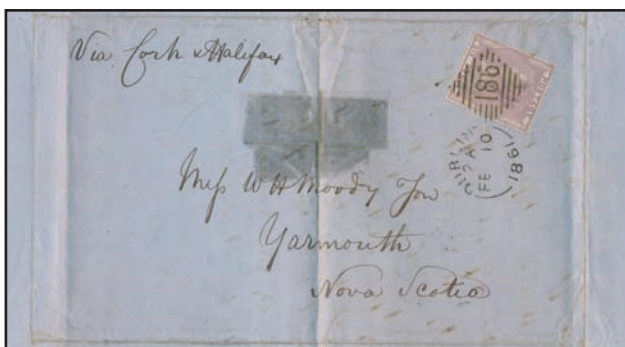 Via Cork & Halifax
186
DUBLIN
FE 10
1861
Mess W H Moody
Yarmouth
Nova Scotia